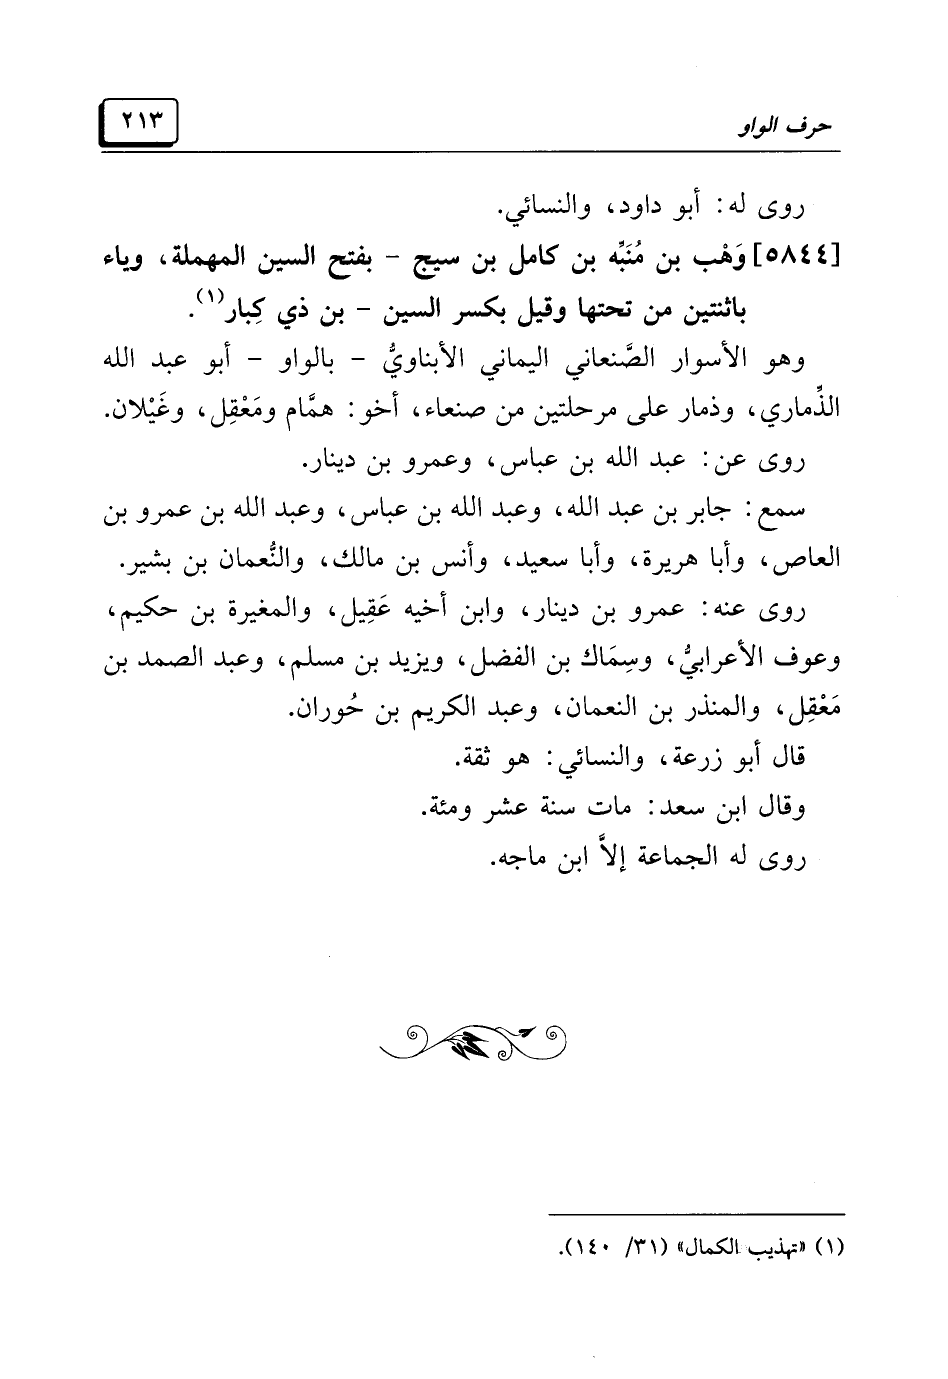 حرف الواو
٢١٣
روى له: أبو داود، والنسائي.
[٥٨٤٤] وَهْب بن مُنَبِّه بن كامل بن سيج – بفتح السين المهملة، وياء
باثنتين من تحتها وقيل بكسر السين – بن ذي كِبار(١).
وهو الأسوار الصَّنعاني اليماني الأبناويُّ – بالواو – أبو عبد الله
الذِّماري، وذمار على مرحلتين من صنعاء، أخو: همَّام ومَعْقِل، وغَيْلان.
روى عن: عبد الله بن عباس، وعمرو بن دينار.
سمع: جابر بن عبد الله، وعبد الله بن عباس، وعبد الله بن عمرو بن
العاص، وأبا هريرة، وأبا سعيد، وأنس بن مالك، والنُّعمان بن بشير.
روى عنه: عمرو بن دينار، وابن أخيه عَقِيل، والمغيرة بن حكيم،
وعوف الأعرابيُّ، وسِمَاك بن الفضل، ويزيد بن مسلم، وعبد الصمد بن
مَعْقِل، والمنذر بن النعمان، وعبد الكريم بن حُوران.
قال أبو زرعة، والنسائي: هو ثقة.
وقال ابن سعد: مات سنة عشر ومئة.
روى له الجماعة إلاَّ ابن ماجه.
(١) «تهذيب الكمال» (٣١/ ١٤٠).